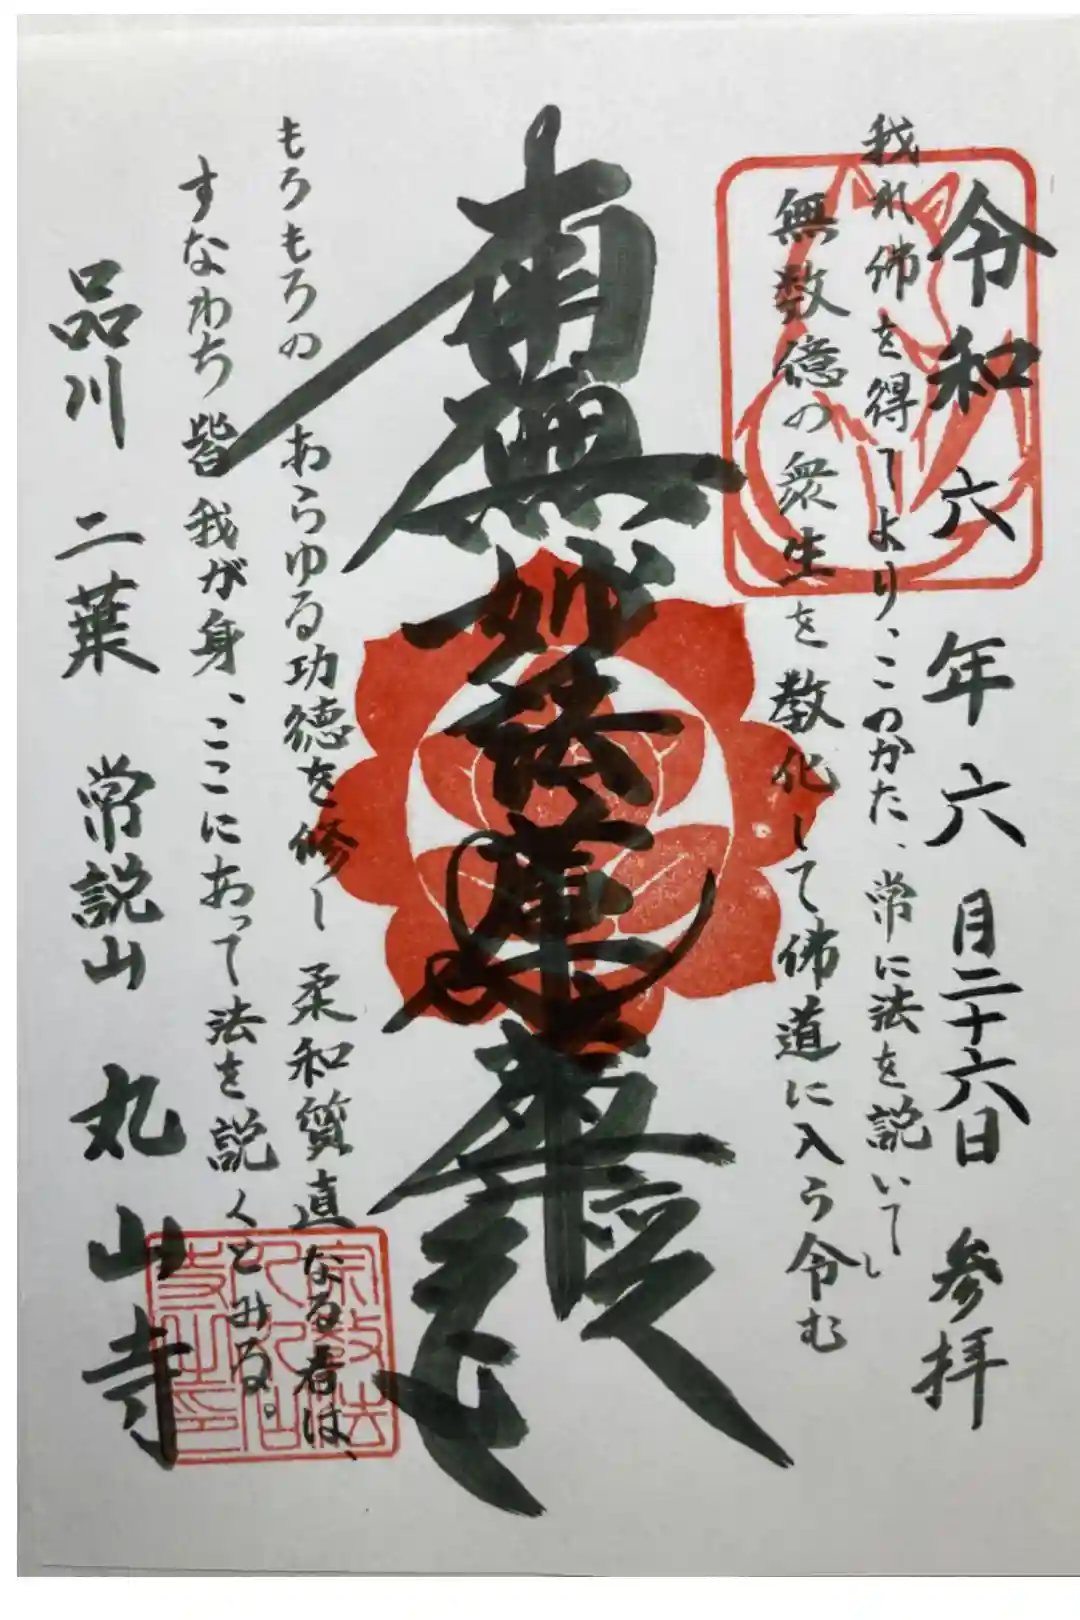 令和六年六月二十六日 参拝
我れ佛を得てよりこのかた、常に法を説いて
無数億の衆生を教化して佛道に入ら令む
南無妙法蓮華経
もろもろの あらゆる功徳を修し 柔和質直なる者は、
すなわち皆我が身、ここにあって法を説くとみる。
品川 二葉 常説山 丸山寺
宗教法
人丸山
寺之印